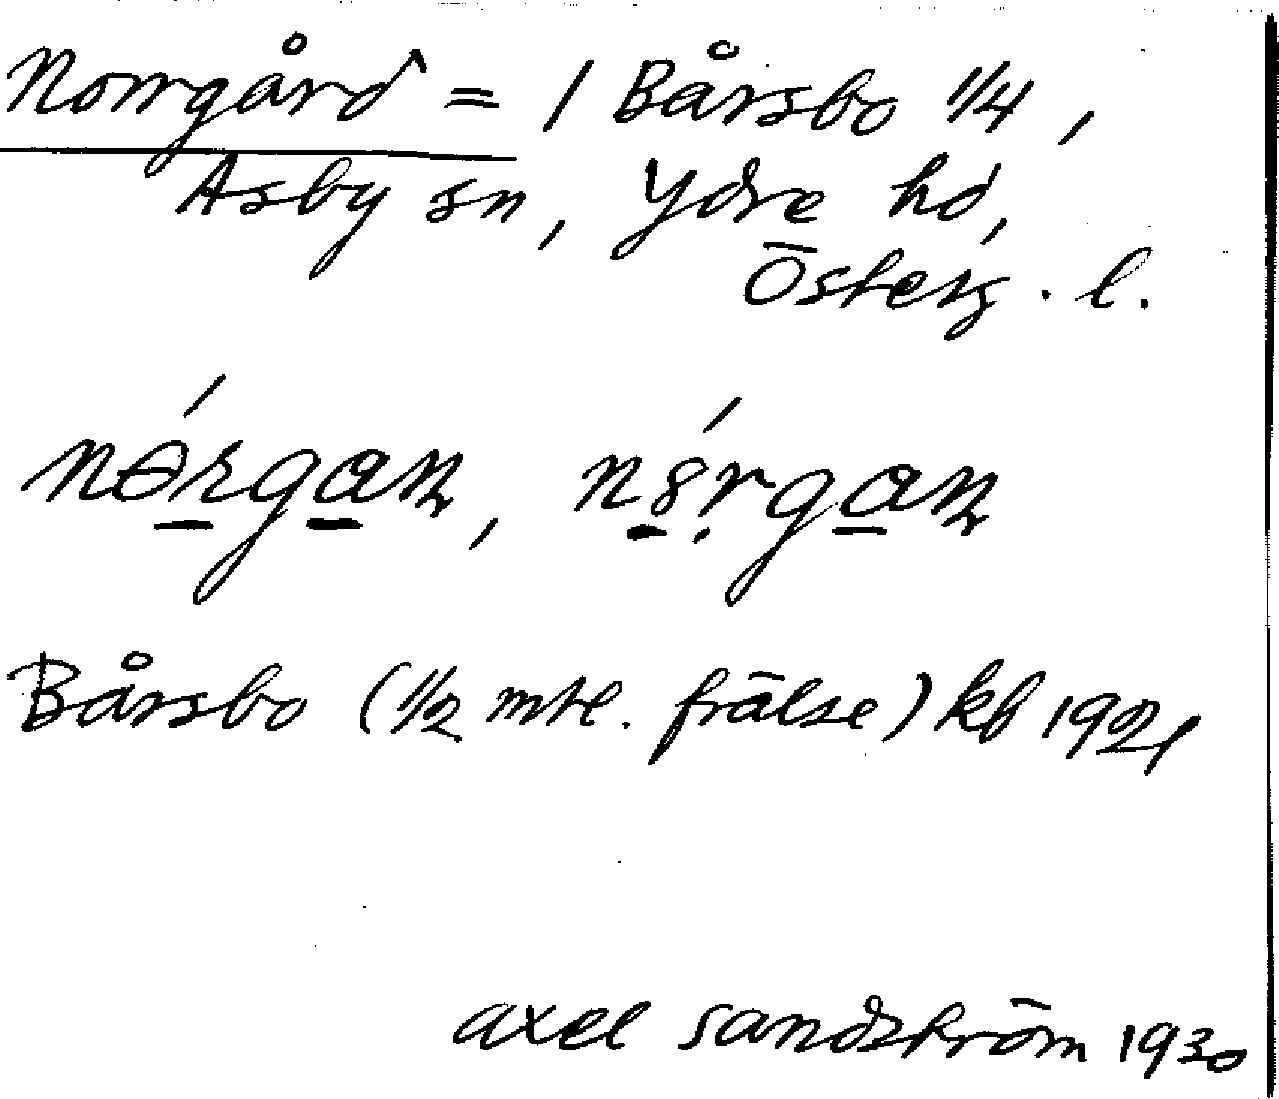 Norrgård = / Bårsbo 1/4,
Asby sn, Ydre hd,
Österg. l.
nórgan, nórgan
Bårsbo (1/2 mtl. frälse) kb 1921
axel sandström 1930